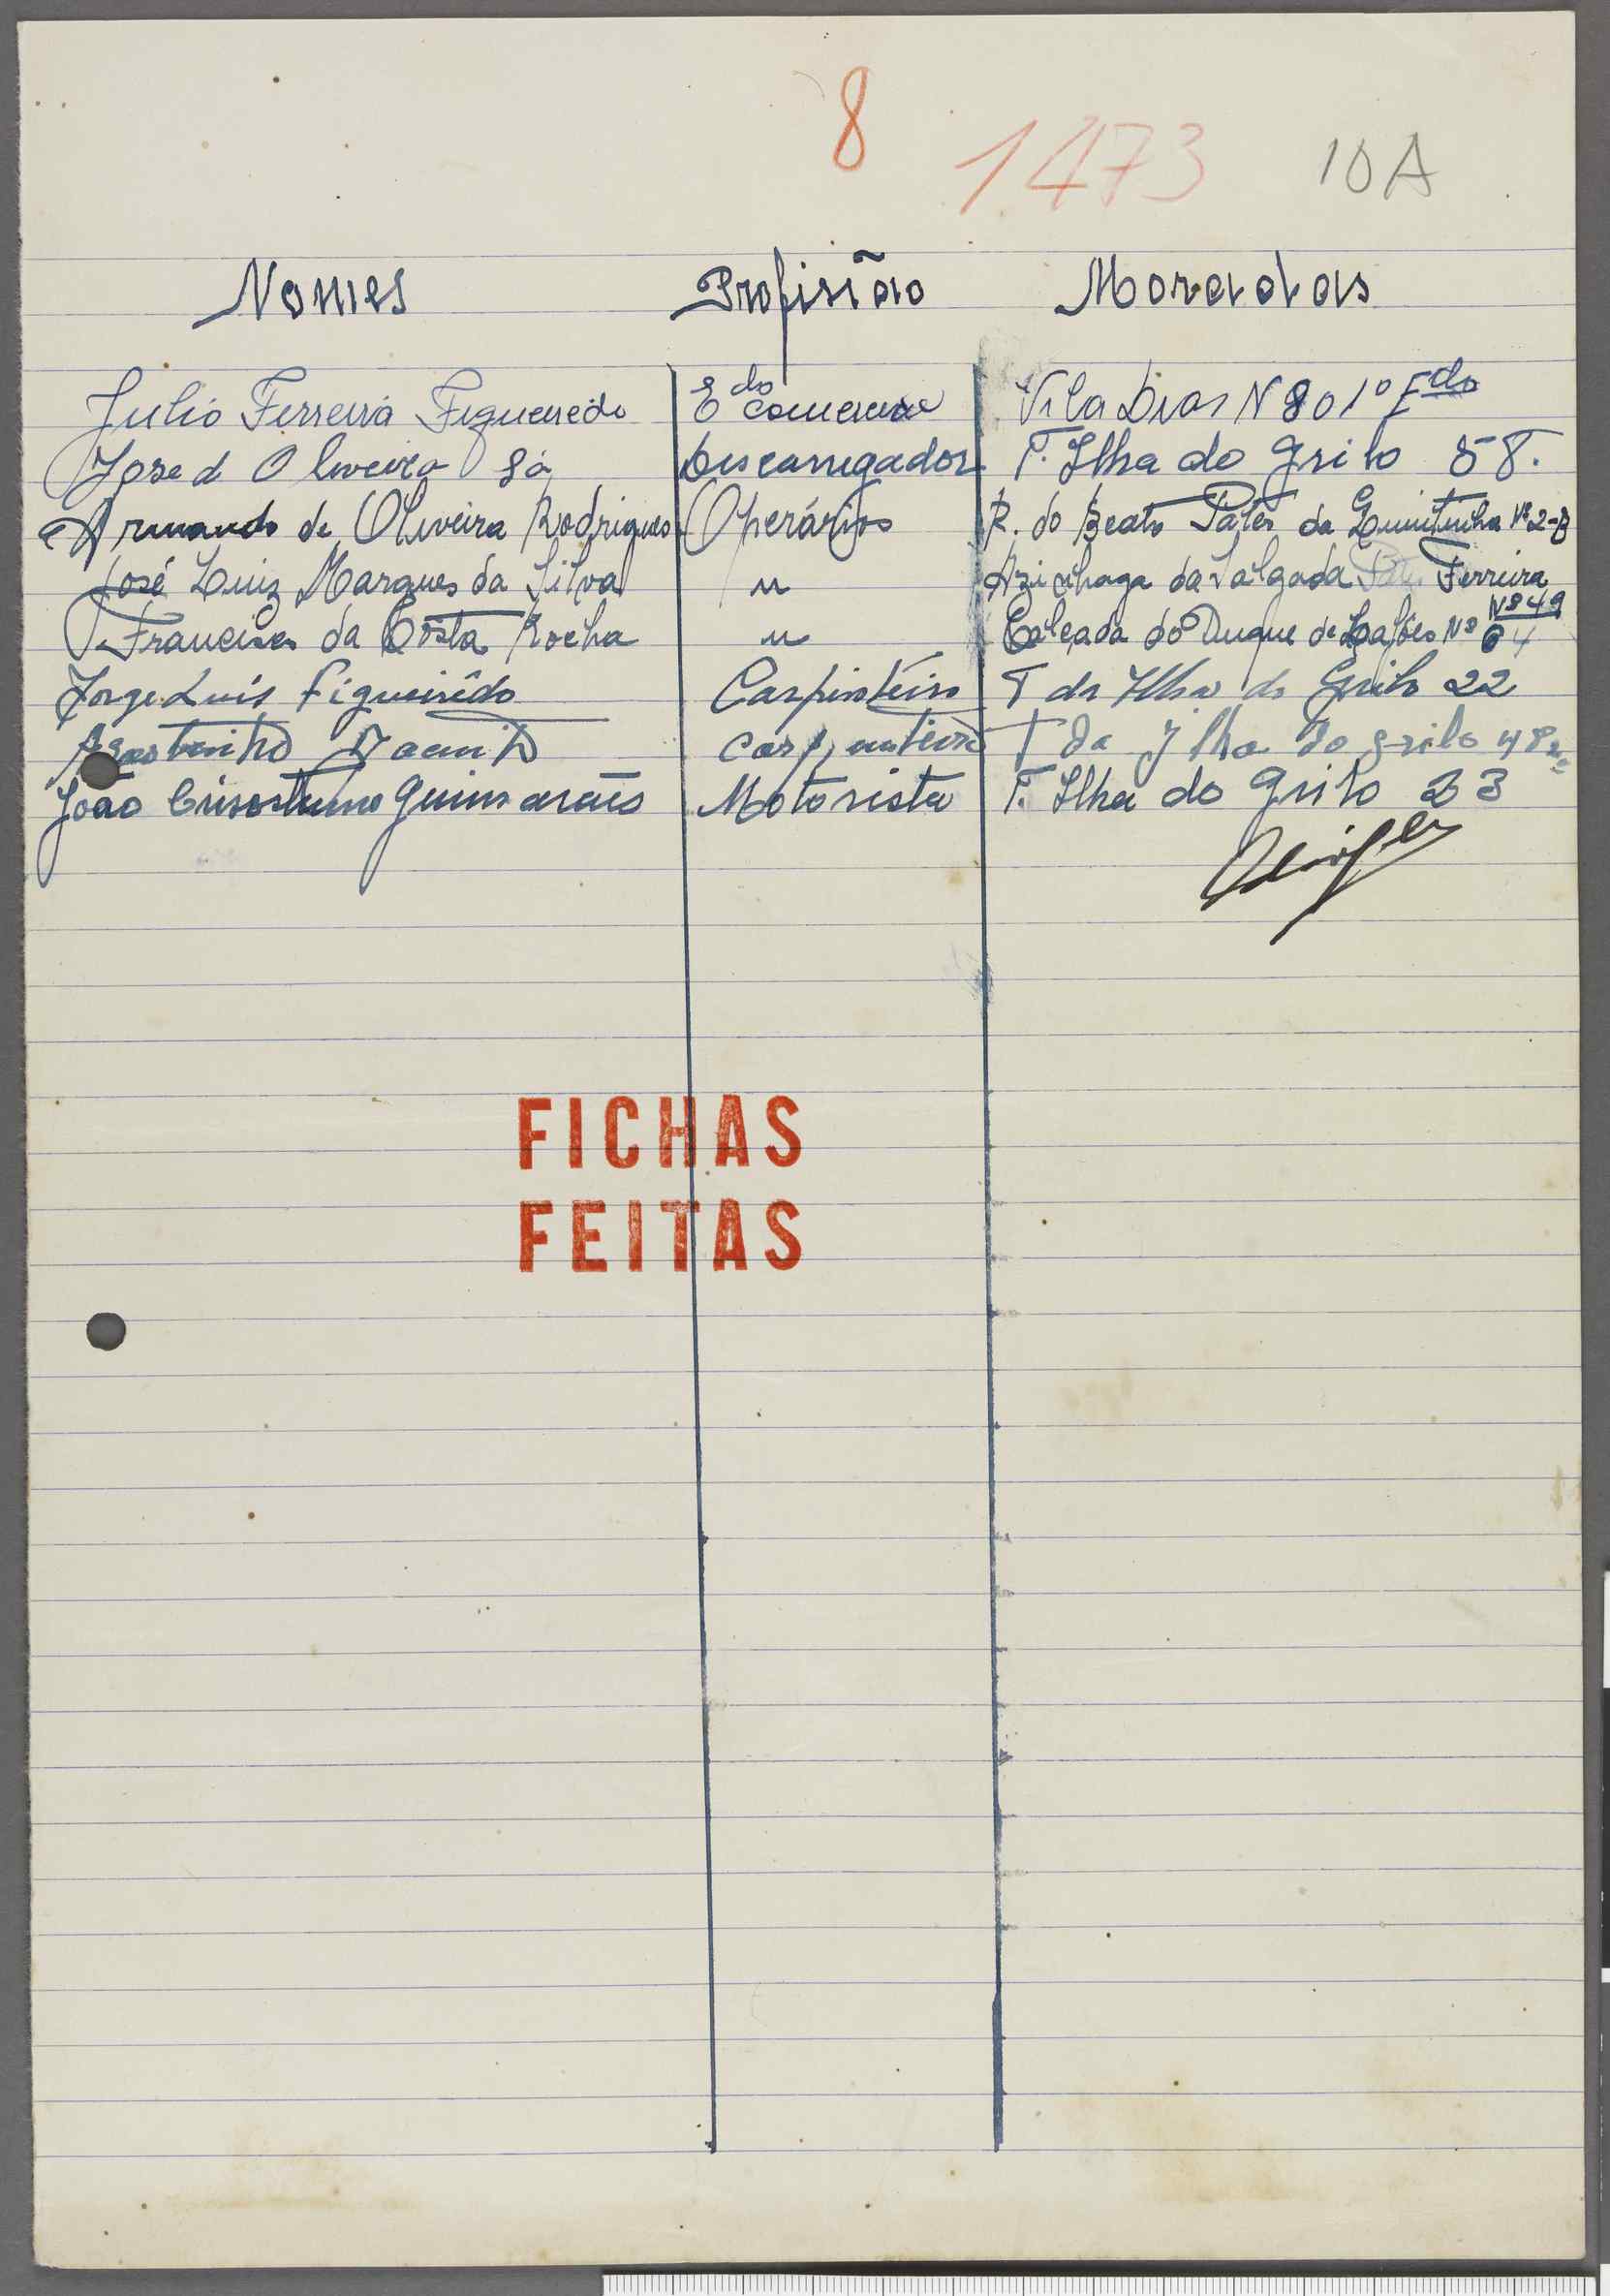 8 1473 10A
Nomes Profisião Moradas
Julio Ferreira Figueiredo E do comercio Vila Dias N 80 1º Edo
Jose d Oliveira Sá Descarregador T. Ilha do Grilo 58.
Armando de Oliveira Rodrigues Operários R. do Beato Páteo da Quintinha Nº 2-B
José Luiz Marques da Silva " Azinhaga da Salgada Ferreira Nº 49
Francisco da Costa Rocha " Calçada do Duque de Lafões Nº 64
Jorge Luís Figueirêdo Carpinteiro T da Ilha do Grilo 22
Agostinho Jacinto carpinteiro T Da Ilha Do grilo
João Crisostumo Guimarães Motorista T. Ilha do Grilo 23
FICHAS
FEITAS